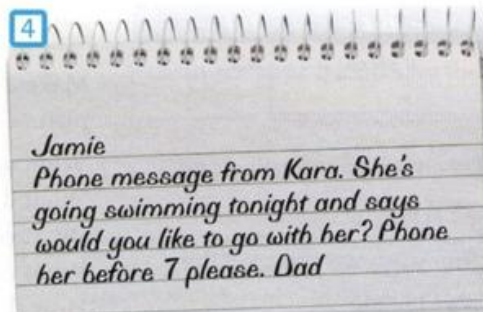 4
Jamie
Phone message from Kara. She's
going swimming tonight and says
would you like to go with her? Phone
her before 7 please. Dad